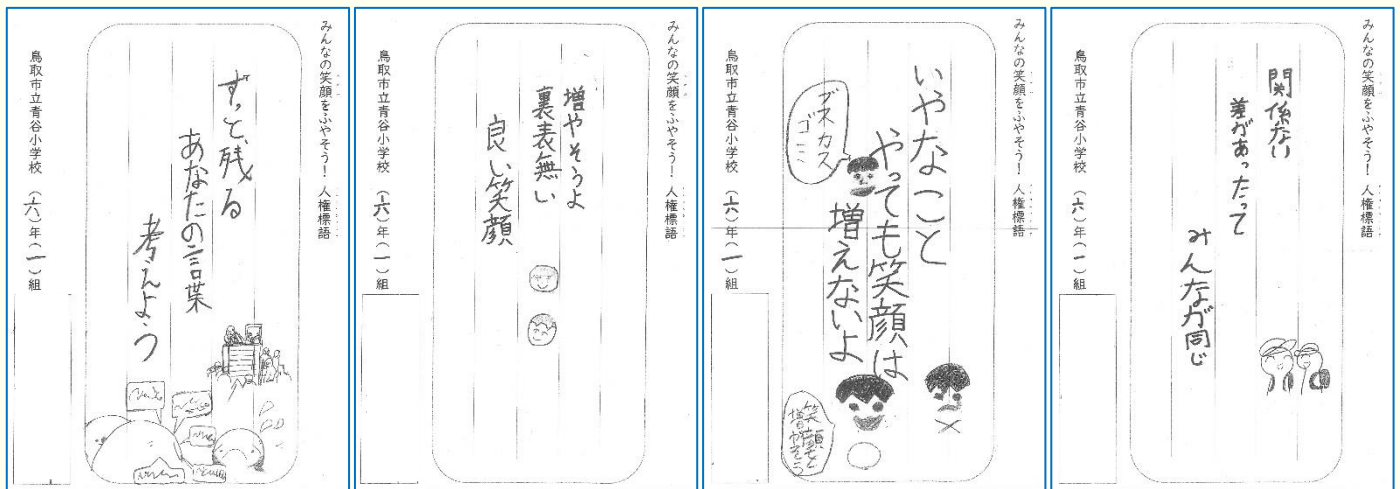 みんなの笑顔をふやそう！人権標語
ずっと残る
あなたの言葉
考えよう
鳥取市立青谷小学校（六）年（一）組
みんなの笑顔をふやそう！人権標語
増やそうよ
裏表無い
良い笑顔
鳥取市立青谷小学校（六）年（一）組
みんなの笑顔をふやそう！人権標語
いやなこと
やっても笑顔は
増えないよ
カス
ゴミ
笑顔を
増やそう
鳥取市立青谷小学校（六）年（一）組
みんなの笑顔をふやそう！人権標語
関係ない
差があったって
みんなが同じ
鳥取市立青谷小学校（六）年（一）組